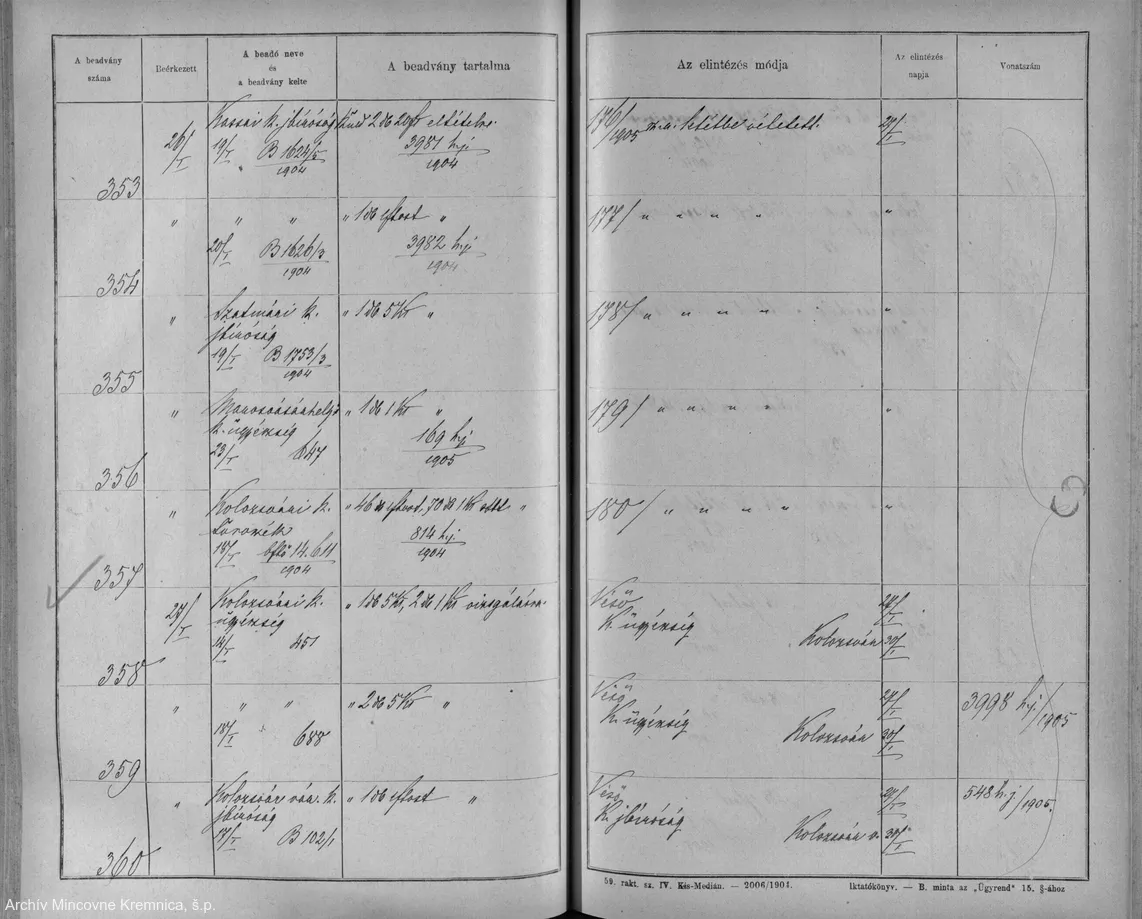 A beadvány
száma
Beérkezett
A beadó neve
és
a beadvány kelte
A beadvány tartalma
353
26/I
Kassai k. jbíróság
19/I B 1624/5
1904
Küld 2 db 20 f eltételre.
3987 h.j.
1904
354
" " "
20/I B 1626/3
1904
" 1 db "
3982 h.j.
1904
355
"
Szatmári k.
jbíróság
19/I B. 1753/3
1904
" 1 db 5 Kr "
356
"
Marosvásárhelyi
k. ügyészség
23/I 647
" 1 db 1 Kr "
169 h.j.
1905
357
"
Kolozsvári k.
18/I 14.611
1904
" 46 db 70 db 1 Kr "
814 h.j.
1904
358
27/I
Kolozsvári k.
ügyészség
14/I 451
" 1 db 5 Kr, 2 db 1 Kr vizsgálásra
359
" " "
18/I 688
" 2 db 5 Kr "
360
"
Kolozsvár vár. k.
jbíróság
17/I B 102/1
" 1 db "
Az elintézés módja
Az elintézés
napja
Vonatszám
176/1905 letétbe vétetett.
177/ " " " "
"
178/ " " " "
"
179/ " " " "
"
180/ " " " "
"
K. ügyészség
Kolozsvár 30/I
K. ügyészség
Kolozsvár 30/I
3998 h.j./1905
K. jbíróság
Kolozsvár v.
548 h.j./1905.
59. rakt. sz. IV. Kis-Medián. — 2006/1904.
Iktatókönyv. — B. minta az „Ügyrend" 15. §-ához
Archív Mincovne Kremnica, š.p.